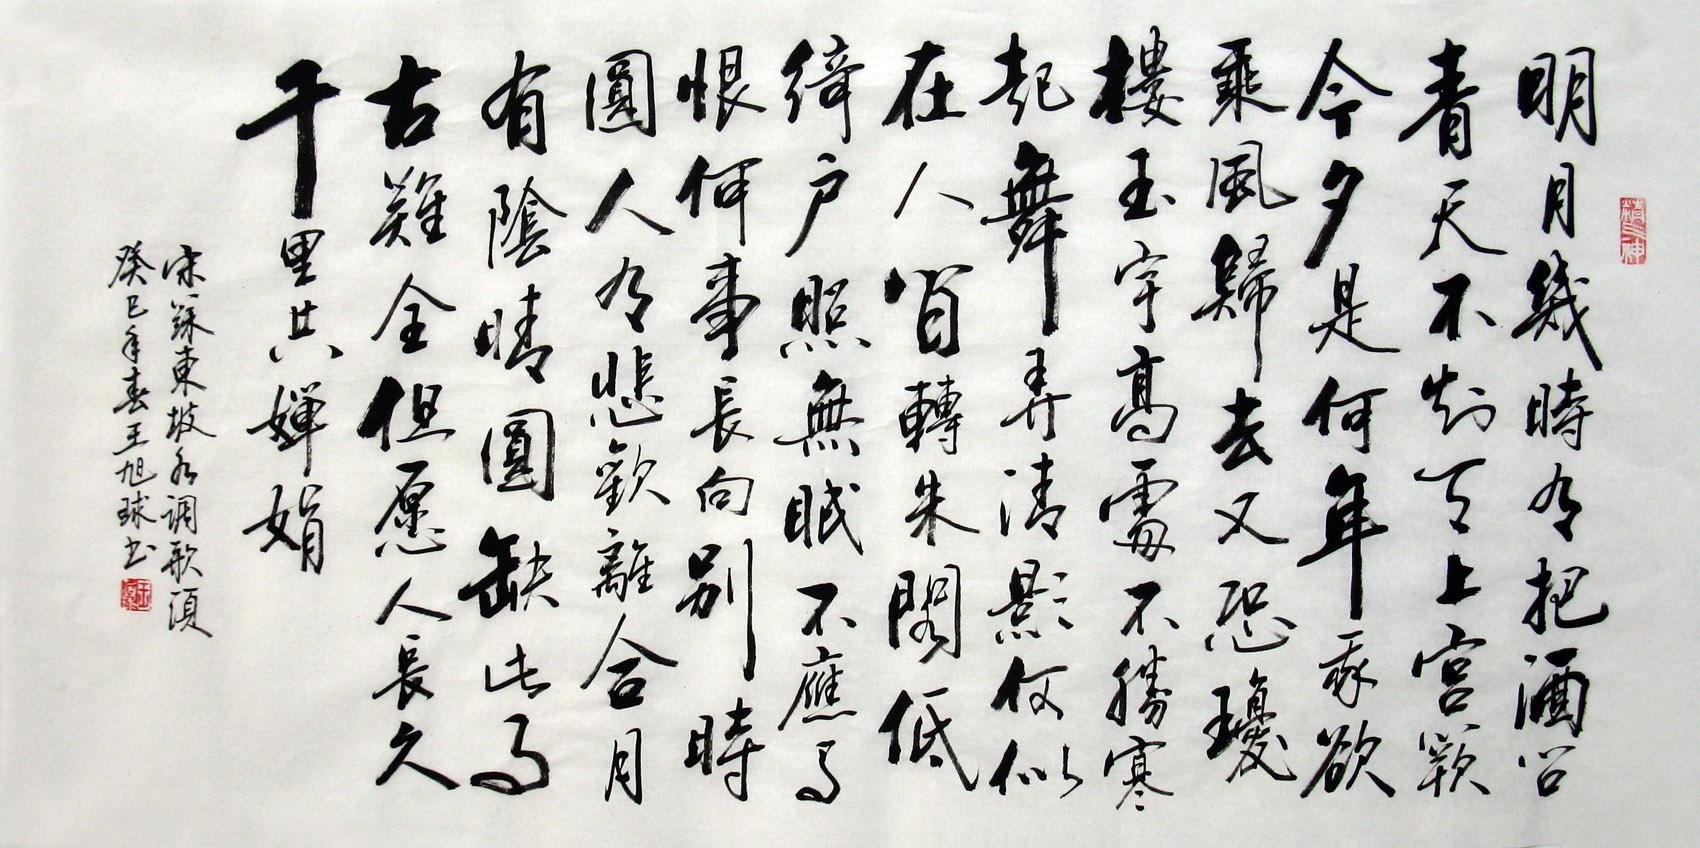 精神
明月幾時有把酒问
青天不知天上宫闕
今夕是何年我欲
乘風歸去又恐瓊
樓玉宇高處不勝寒
起舞弄清影何似
在人間轉朱閣低
綺户照無眠不應有
恨何事長向别時
圓人有悲歡離合月
有陰晴圓缺此事
古難全但愿人長久
千里共嬋娟
宋蘇東坡水调歌頭
癸巳年春王旭球书